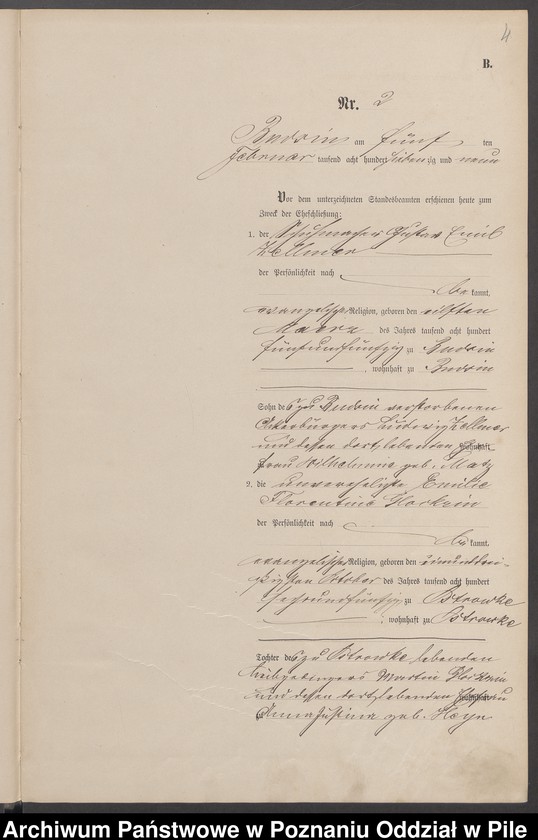 4
B.
Nr. 2
Budsin am fünf ten
Februar tausend acht hundert siebenzig und neun
Vor dem unterzeichneten Standesbeamten erschienen heute zum
Zweck der Eheschließung:
1. der Schuhmacher Gustav Emil
Zellmer
der Persönlichkeit nach
be kannt,
evangelischer Religion, geboren den elften
Maerz des Jahres tausend acht hundert
fünfundfünfzig zu Budsin
, wohnhaft zu Budsin
Sohn des zu Budsin verstorbenen
Ackerbürgers Ludwig Zellmer
und dessen dort lebenden wohnhaft
Frau Wilhelmine geb. Matz
2. die unverehelichte Emilie
Florentine
der Persönlichkeit nach
be kannt,
evangelischer Religion, geboren den einunddrei-
ßigsten Oktober des Jahres tausend acht hundert
sechsundfünfzig zu Ostrowke
, wohnhaft zu Ostrowke
Tochter des zu Ostrowke lebenden
Leibgedingers Martin
und dessen dort lebenden Ehefrau
Anna Justine geb. Heyn
Archiwum Państwowe w Poznaniu Oddział w Pile